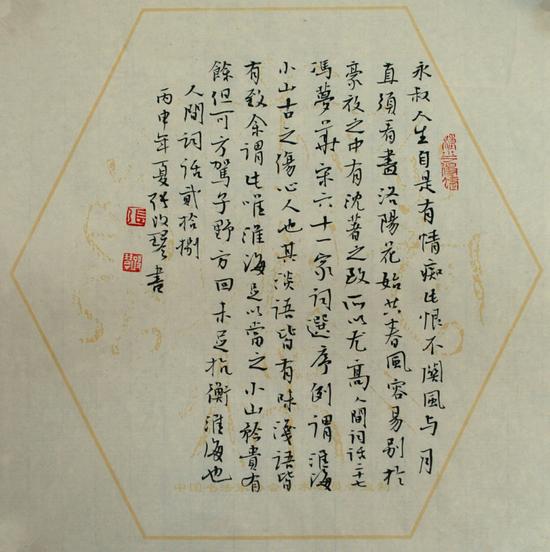 永叔人生自是有情痴此恨不關風与月
直須看盡洛陽花始共春風容易别於
豪放之中有沈著之致所以尤高人間詞話二十七
馮夢華宋六十一家詞選序例謂淮海
小山古之傷心人也其淡語皆有味淺語皆
有致余謂此唯淮海足以當之小山矜貴有
餘但可方駕子野方回未足抗衡淮海也
人間詞話貳拾捌
丙申年夏張 書
張